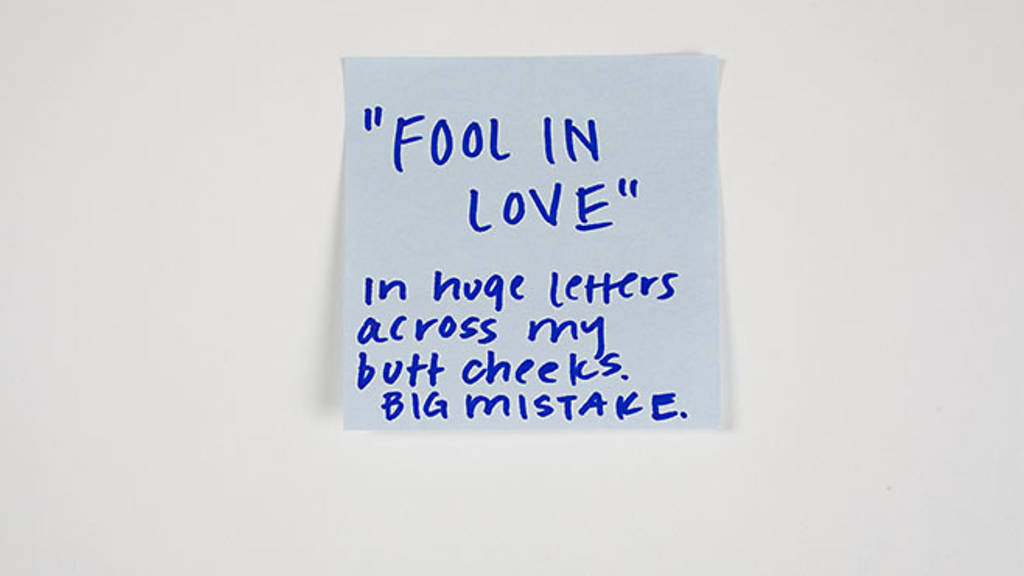 "FOOL IN
LOVE"
In huge letters
across my
butt cheeks.
BIG MISTAKE.